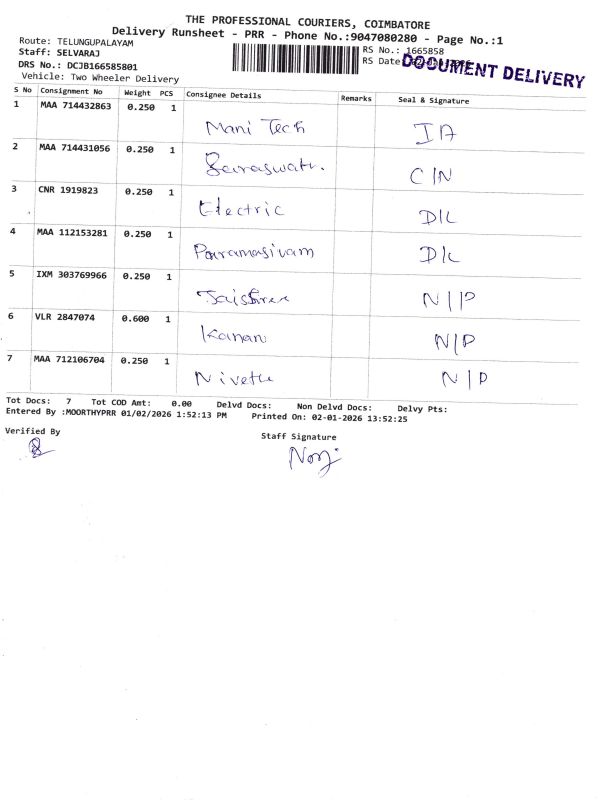 THE PROFESSIONAL COURIERS, COIMBATORE
Delivery Runsheet - PRR - Phone No.:9047080280 - Page No.:1
Route: TELUNGUPALAYAM
Staff: SELVARAJ
DRS No.: DCJB166585801
Vehicle: Two Wheeler Delivery
RS No.: 1665858
RS Date:
DOCUMENT DELIVERY
S No Consignment No Weight PCS Consignee Details Remarks Seal & Signature
1 MAA 714432863 0.250 1 Mani Tech
2 MAA 714431056 0.250 1 C/N
3 CNR 1919823 0.250 1 Electric D/L
4 MAA 112153281 0.250 1 Paramasivam D/L
5 IXM 303769966 0.250 1
6 VLR 2847074 0.600 1 Kanan N/P
7 MAA 712106704 0.250 1 N/P
Tot Docs: 7 Tot COD Amt: 0.00 Delvd Docs: Non Delvd Docs: Delvy Pts:
Entered By :MOORTHYPRR 01/02/2026 1:52:13 PM Printed On: 02-01-2026 13:52:25
Verified By
Staff Signature